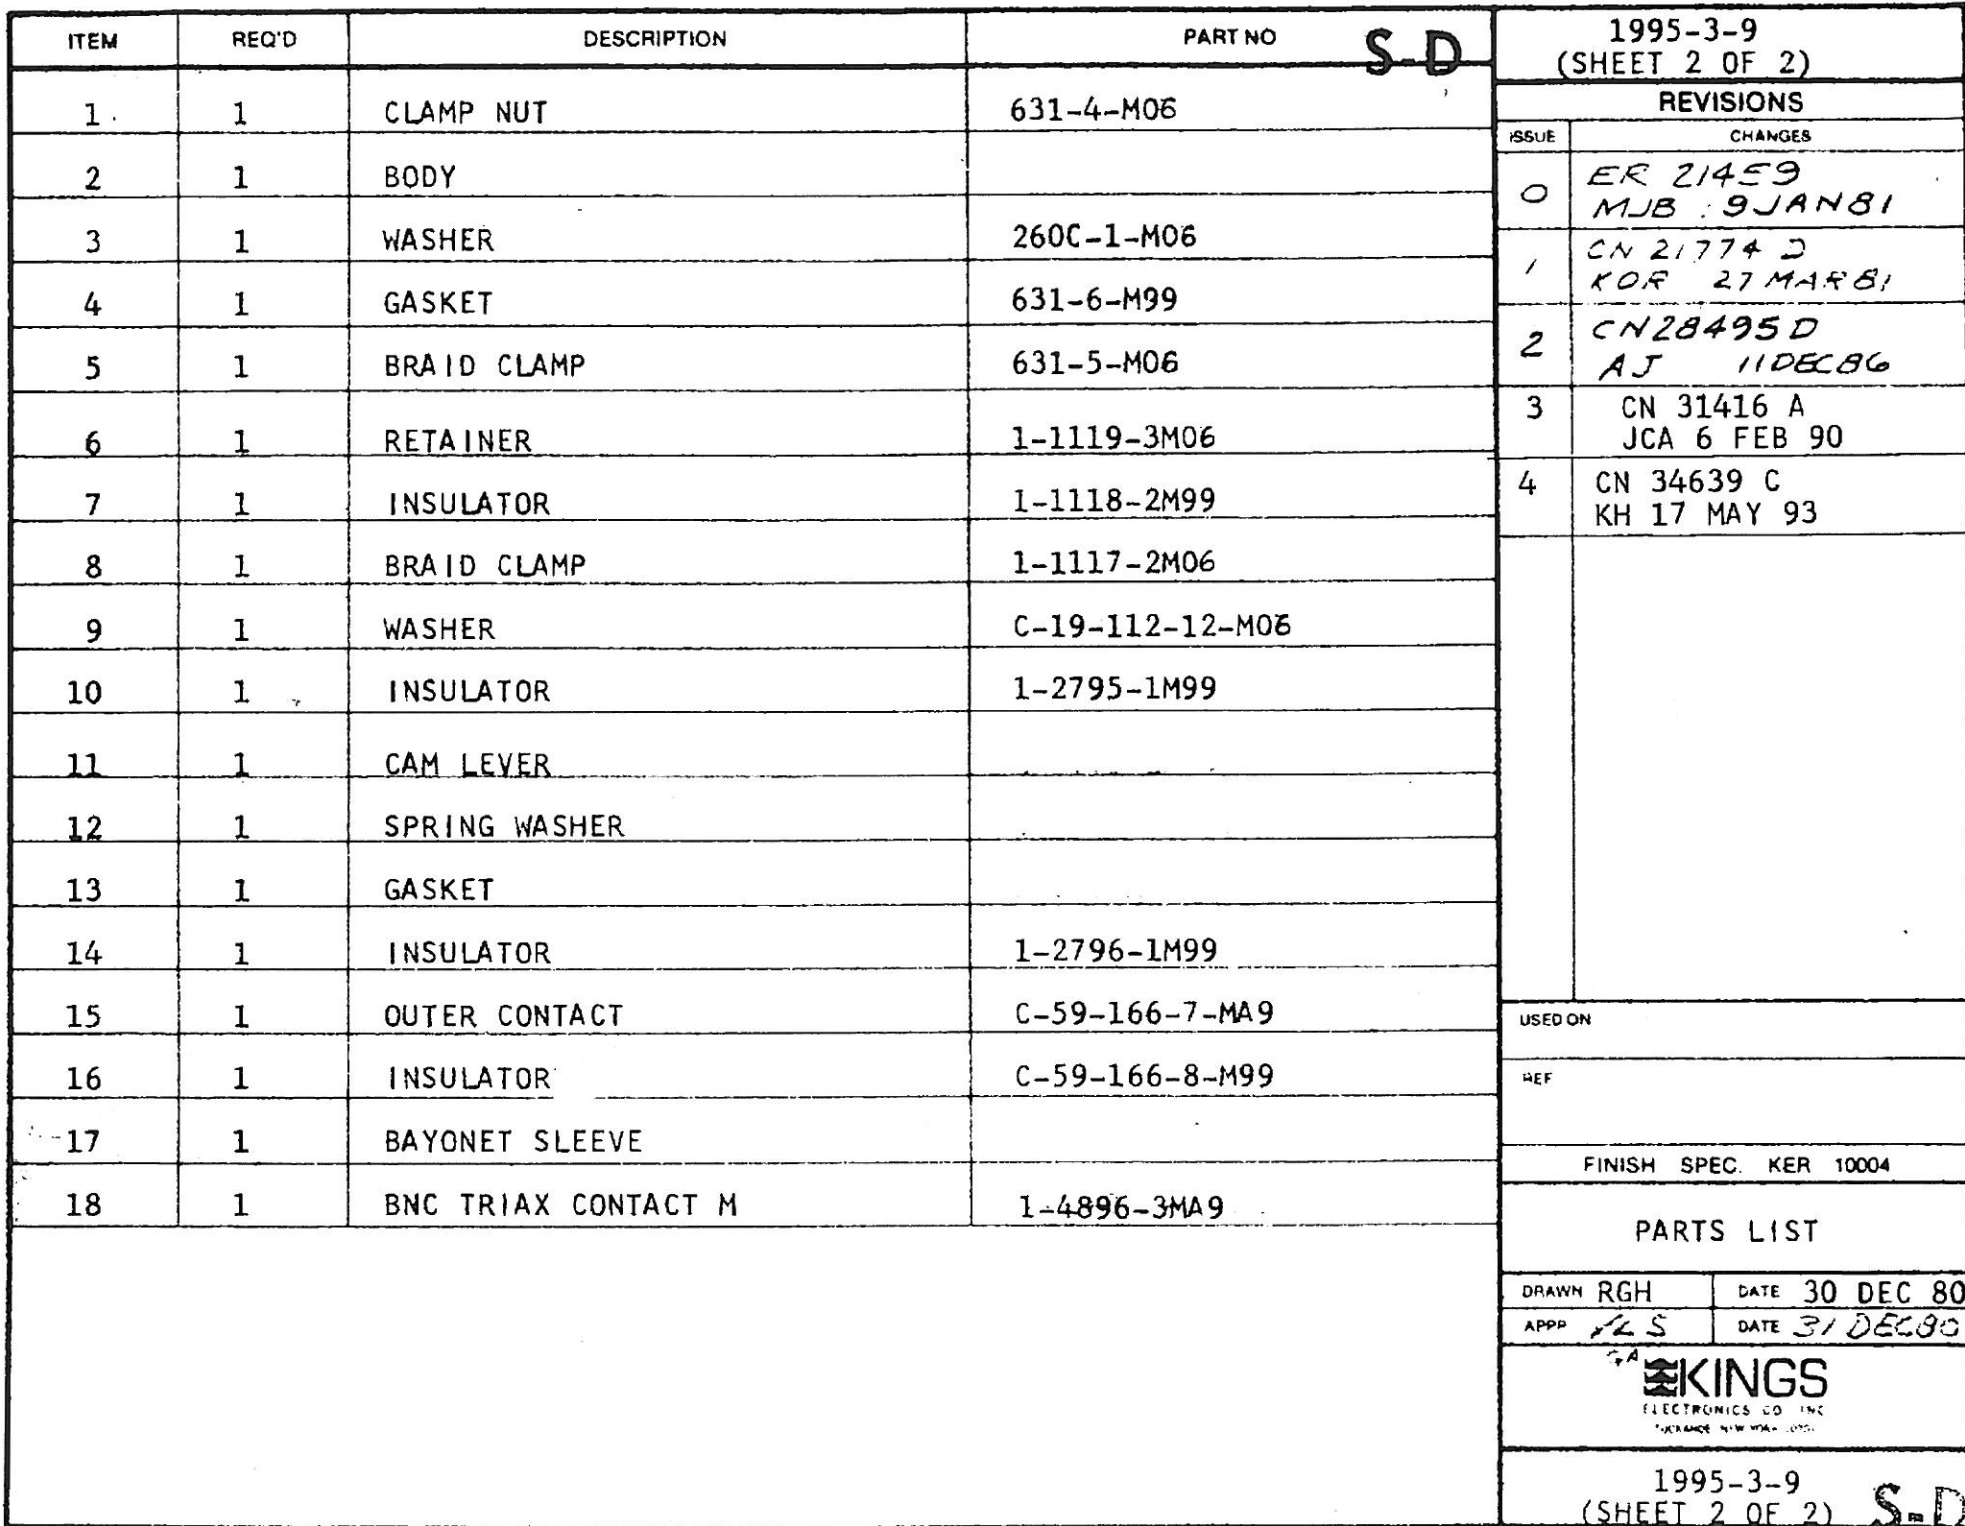 ITEM REQ'D DESCRIPTION PART NO S-D
1 1 CLAMP NUT 631-4-M06
2 1 BODY
3 1 WASHER 260C-1-M06
4 1 GASKET 631-6-M99
5 1 BRAID CLAMP 631-5-M06
6 1 RETAINER 1-1119-3M06
7 1 INSULATOR 1-1118-2M99
8 1 BRAID CLAMP 1-1117-2M06
9 1 WASHER C-19-112-12-M06
10 1 INSULATOR 1-2795-1M99
11 1 CAM LEVER
12 1 SPRING WASHER
13 1 GASKET
14 1 INSULATOR 1-2796-1M99
15 1 OUTER CONTACT C-59-166-7-MA9
16 1 INSULATOR C-59-166-8-M99
17 1 BAYONET SLEEVE
18 1 BNC TRIAX CONTACT M 1-4896-3MA9
1995-3-9
(SHEET 2 OF 2)
REVISIONS
ISSUE CHANGES
0 ER 21459
MJB 9JAN81
1 CN 21774 D
27 MAR 81
2 CN28495D
AJ 11DEC86
3 CN 31416 A
JCA 6 FEB 90
4 CN 34639 C
KH 17 MAY 93
USED ON
REF
FINISH SPEC. KER 10004
PARTS LIST
DRAWN RGH DATE 30 DEC 80
APPP DATE 31 DEC80
KINGS
ELECTRONICS CO INC
NEW YORK
1995-3-9
(SHEET 2 OF 2) S-D